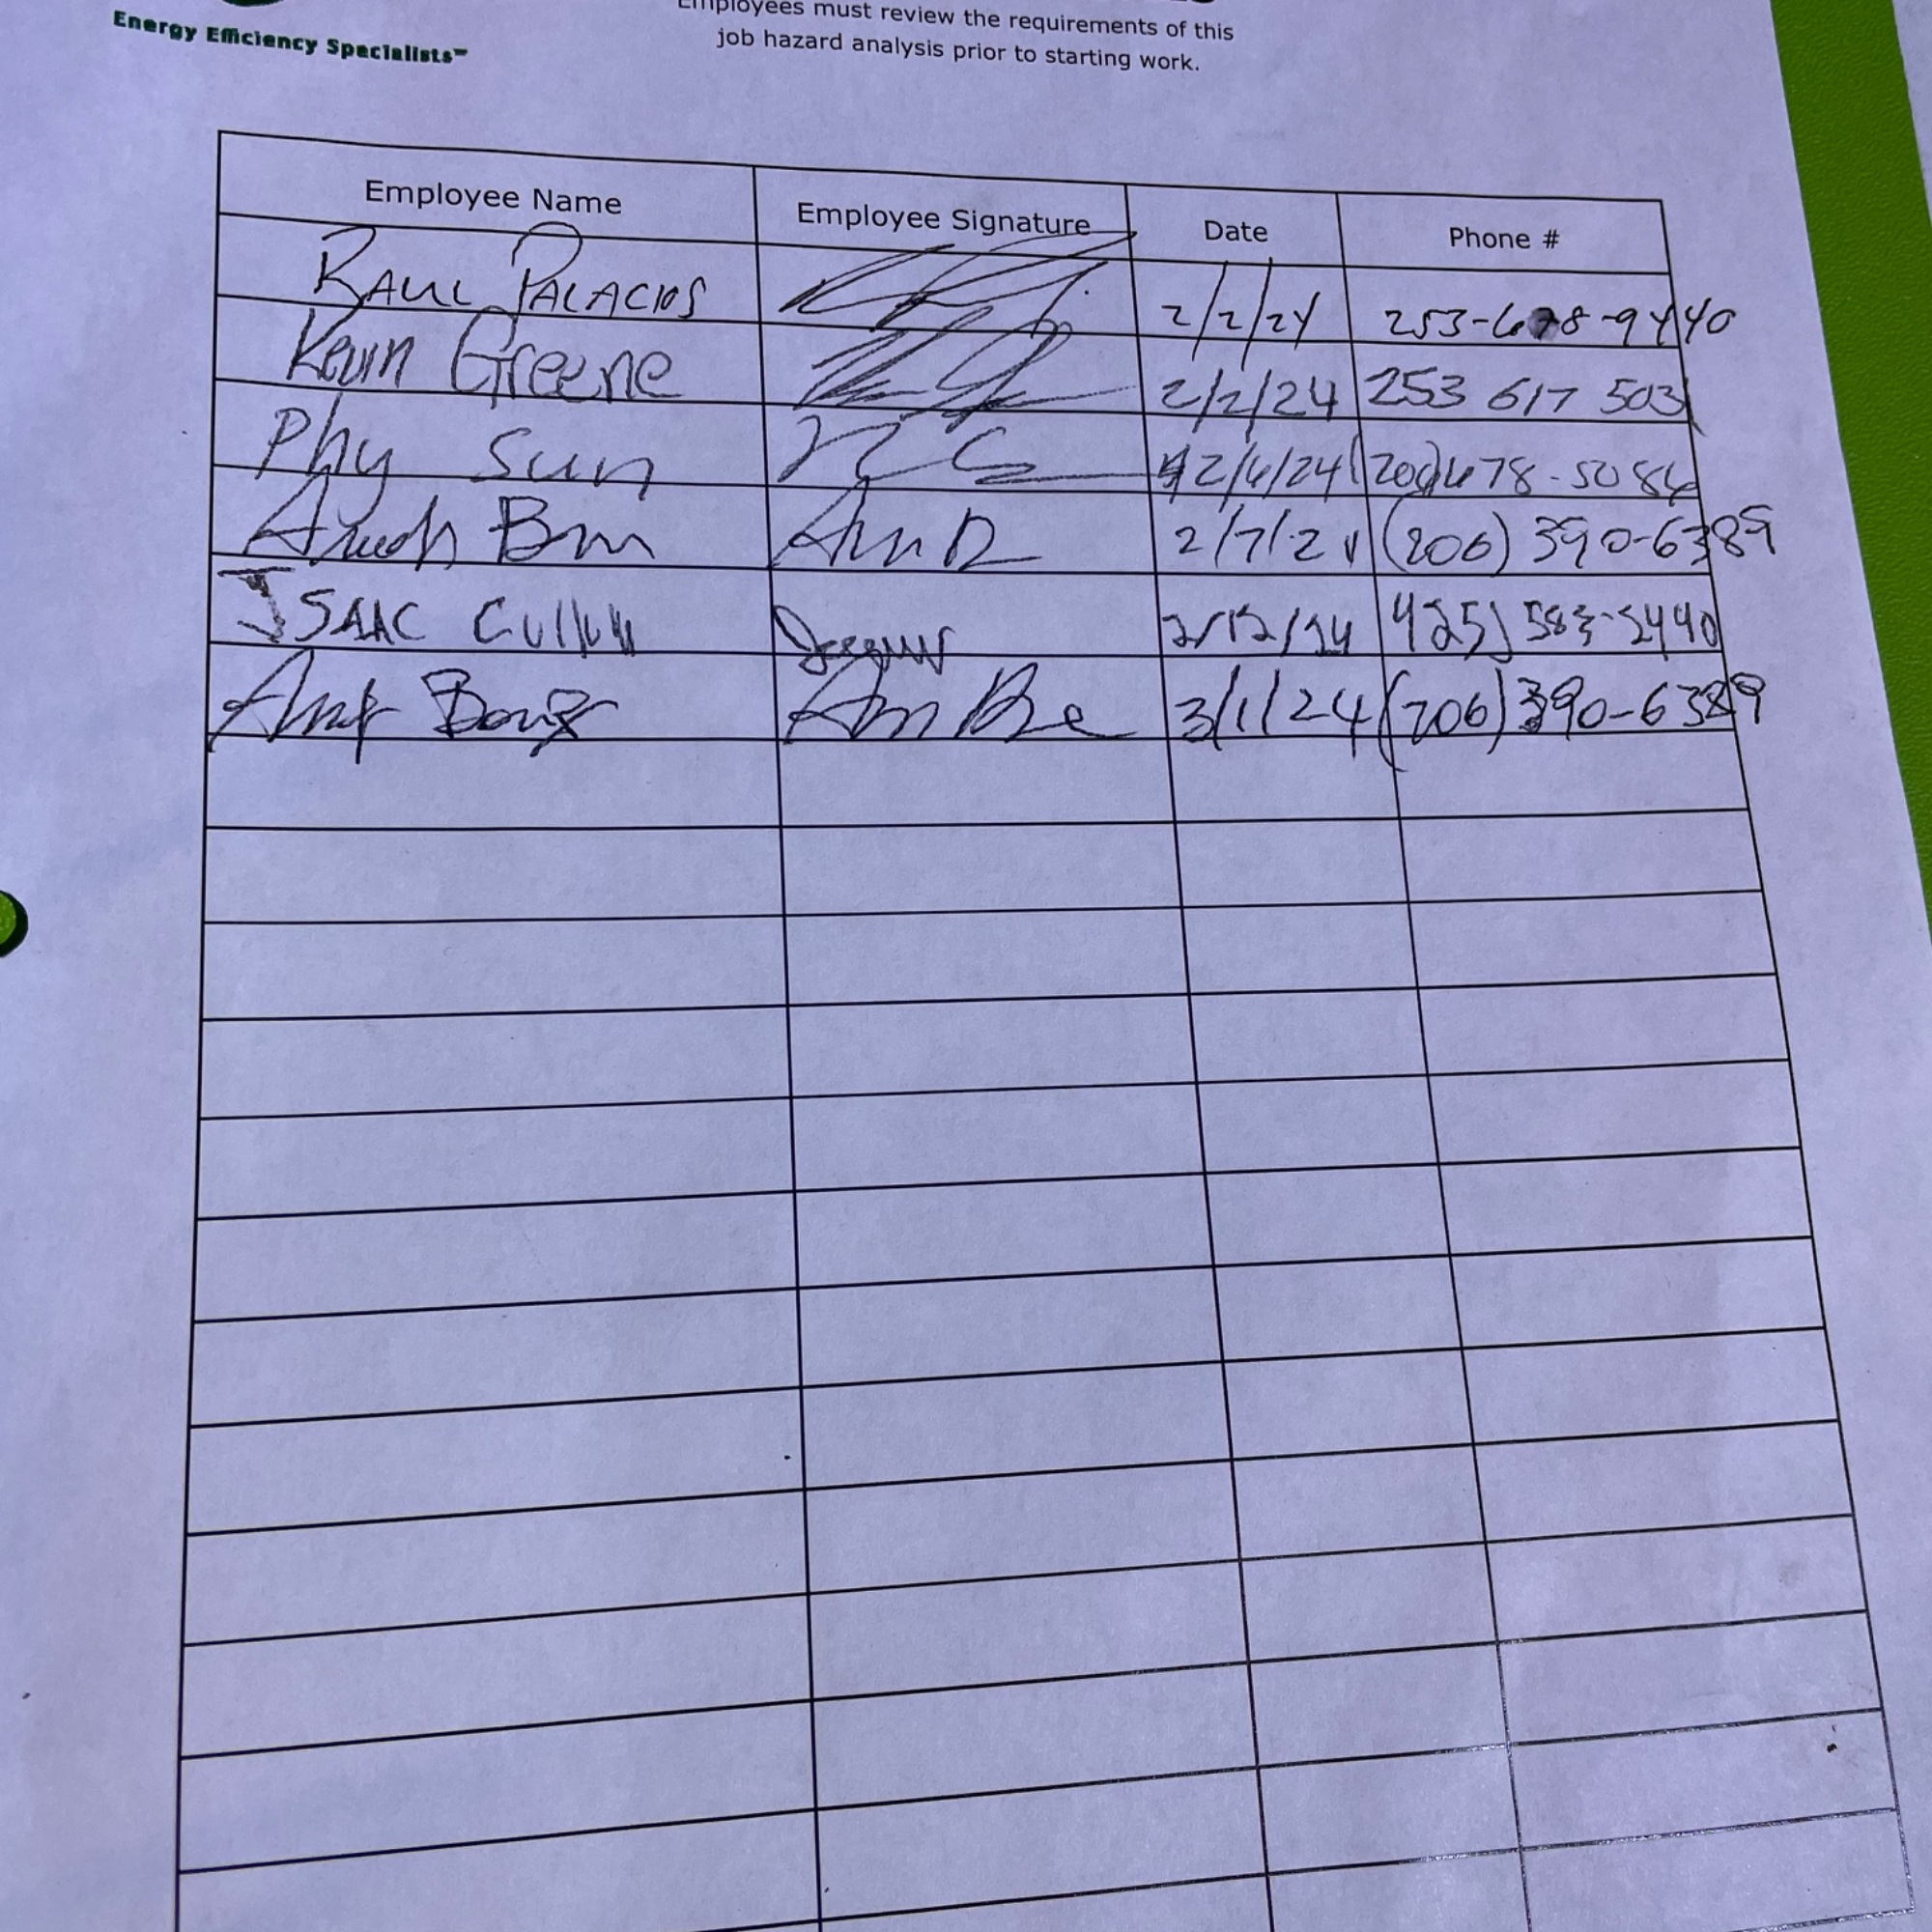 Energy Efficiency Specialists℠
Employees must review the requirements of this
job hazard analysis prior to starting work.
Employee Name Employee Signature Date Phone #
RAUL PALACIOS 2/2/24 253-678-9440
Kevin Greene 2/2/24 253 617 5031
Phy Sun 2/6/24 678-5086
2/7/24 (206) 390-6389
ISAAC 2/12/24 425) 583-2440
3/1/24 (206) 390-6389